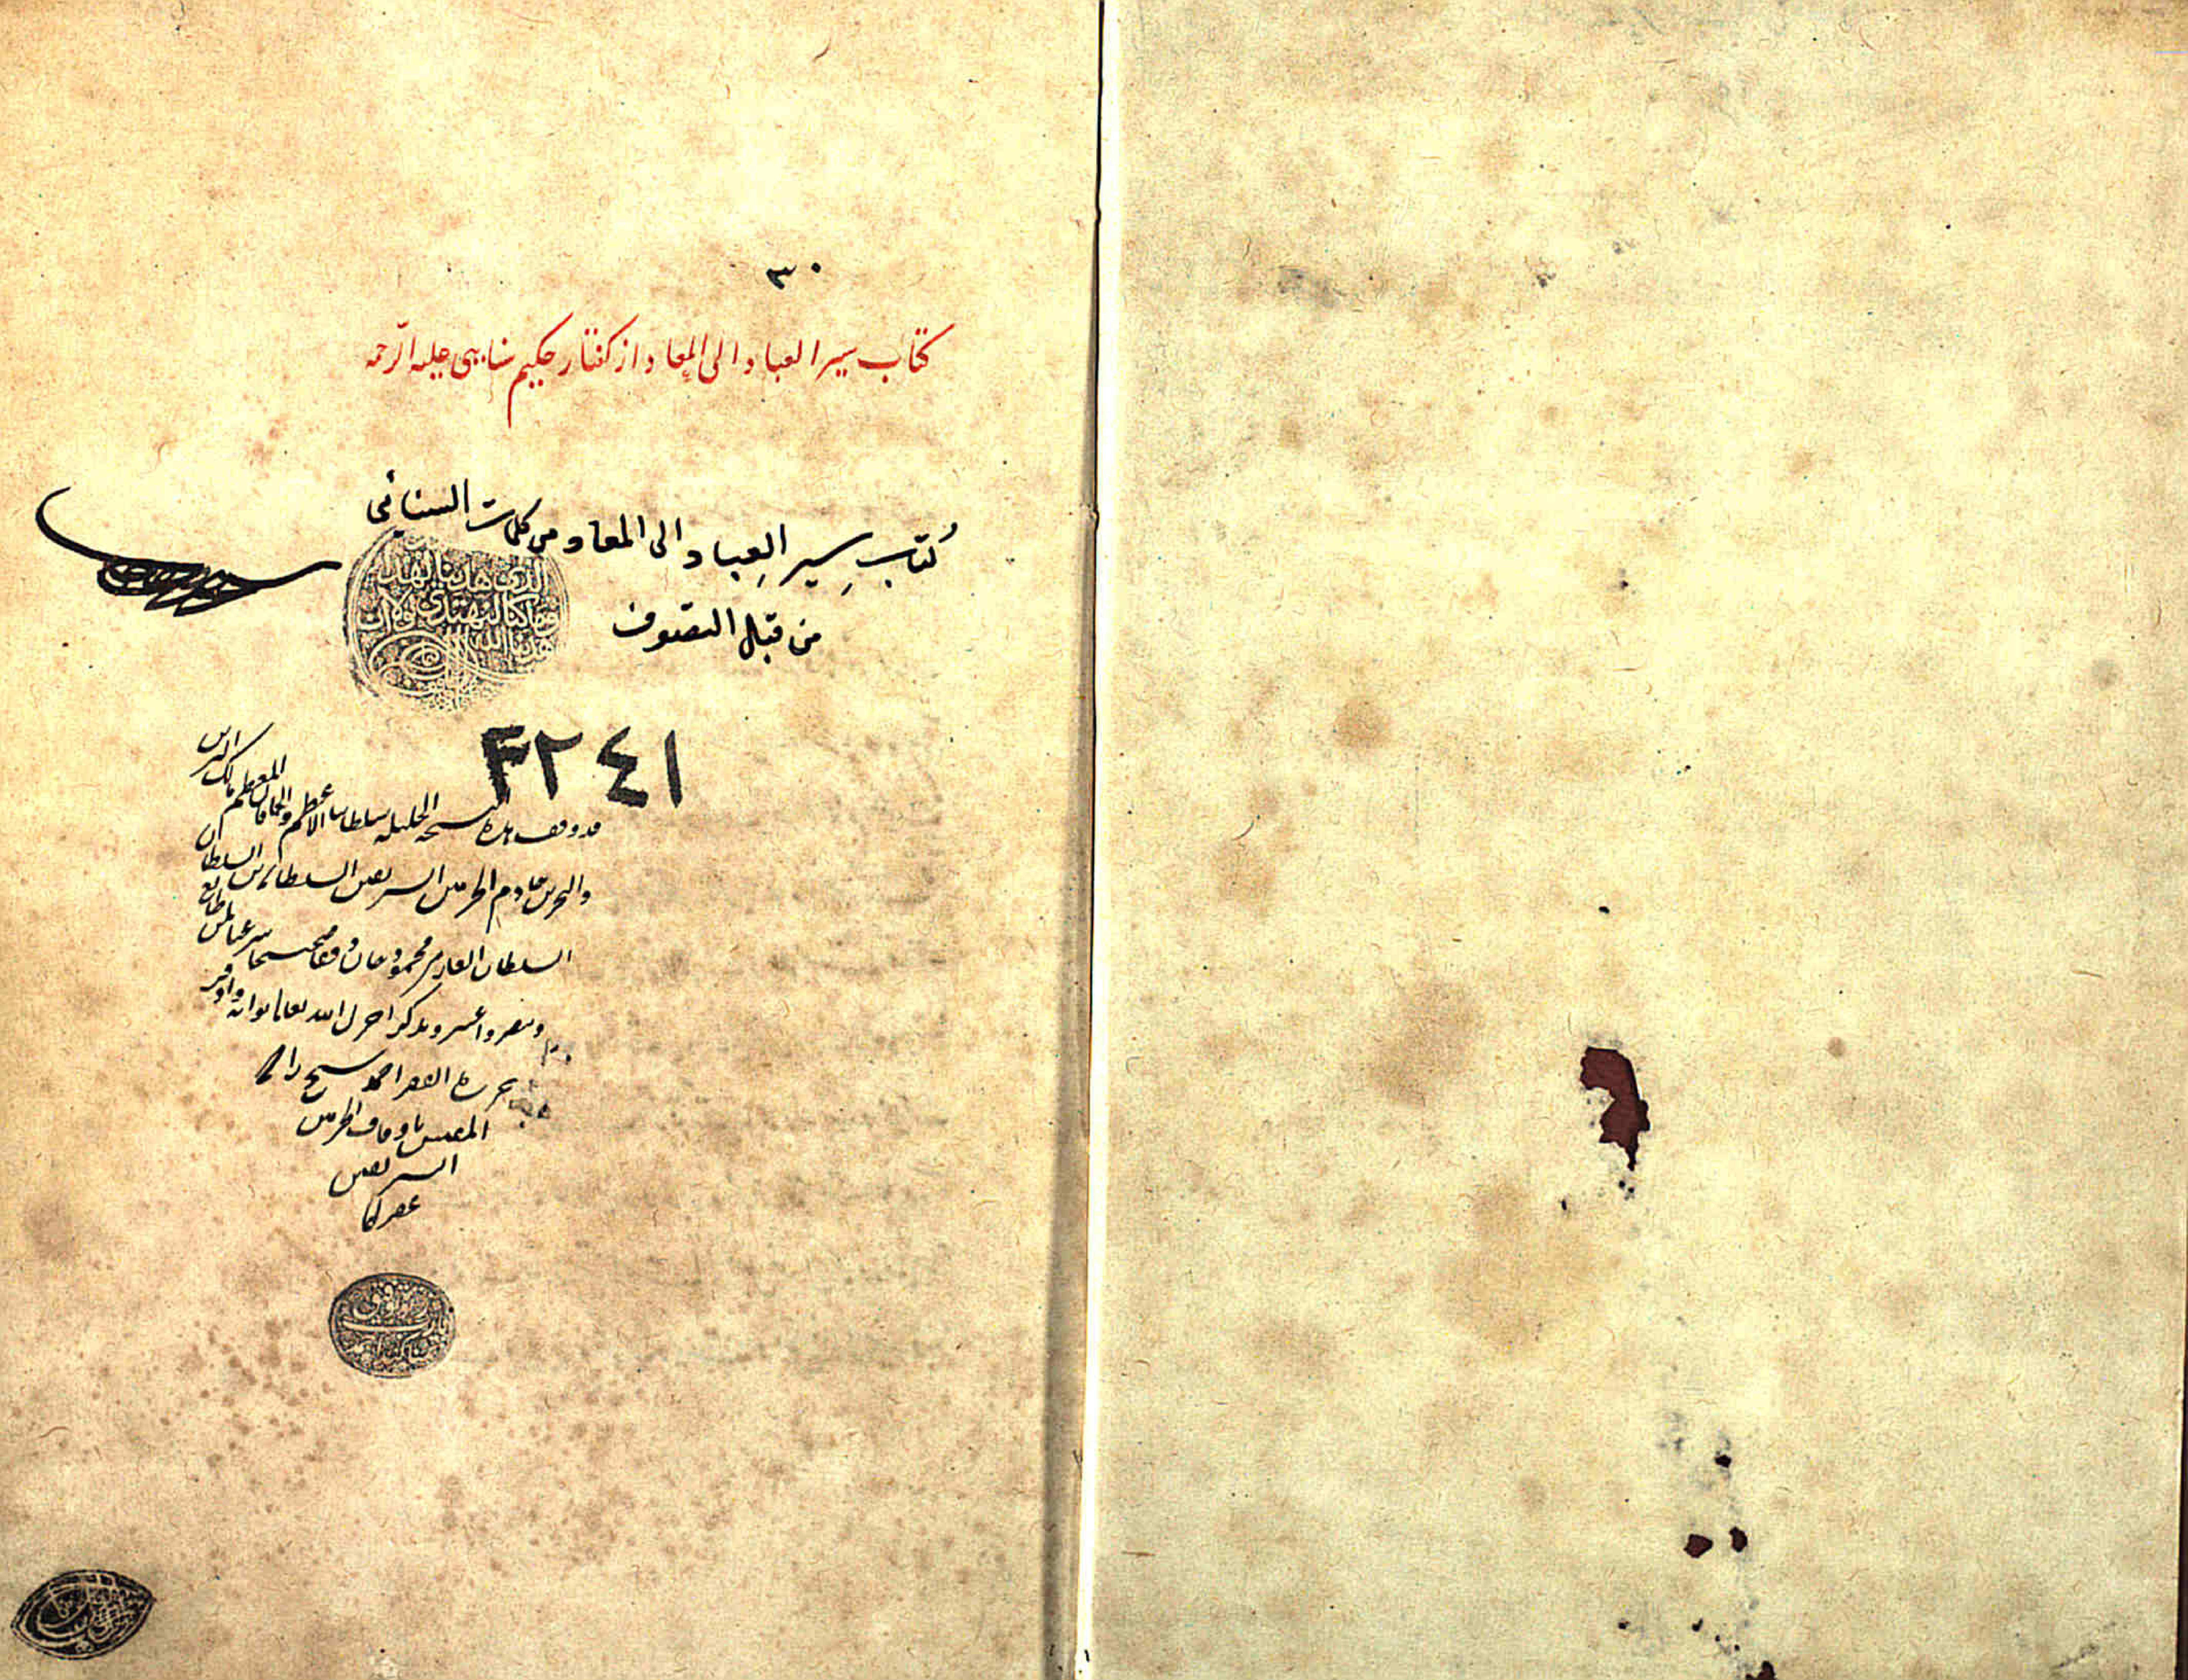 ٣٠
كتاب سير العباد الى المعاد از كفتار حكيم سنايى عليه الرحمه
كتاب سير العباد الى المعاد من كلمات السنائي
من قبل التصوف
الذى هدينا لهذا
وما كنا لنهتدى لولا ان
هدينا الله
٤٢٤١
قد وقف هذه النسخه الجليله سلطاننا الاعظم والخاقان المعظم مالك البرين
والبحرين خادم الحرمين الشريفين السلطان بن السلطان
السلطان الغازى محمود خان وقفا صحيحا شرعيا لمن طالع
وتبصر واعتبر وتذكر اجزل الله تعالى ثوابه واوفر
حرره الفقير احمد شيخ زاده
المفتش باوقاف الحرمين
الشريفين
غفر لهما